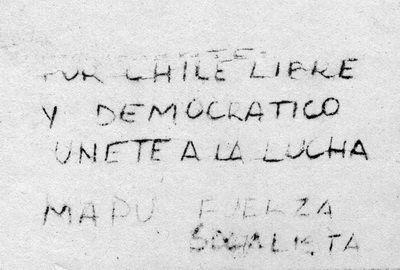 POR CHILE LIBRE
Y DEMOCRATICO
UNETE A LA LUCHA
MAPU FUERZA
SOCIALISTA